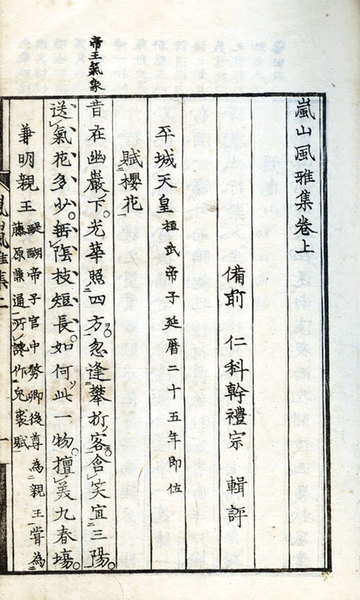 嵐山風雅集卷上
備前 仁科幹禮宗 輯評
平城天皇 桓武帝子延曆二十五年即位
賦櫻花
帝王氣象
昔在幽巖下。光華照四方。忽逢攀折客。含笑宜三陽。
送氣花多少。垂陰枝短長。如何此一物。擅美九春場。
兼明親王 醍醐帝子官中務卿後尊為親王嘗為
藤原兼通所譖作兔裘賦
風雅集